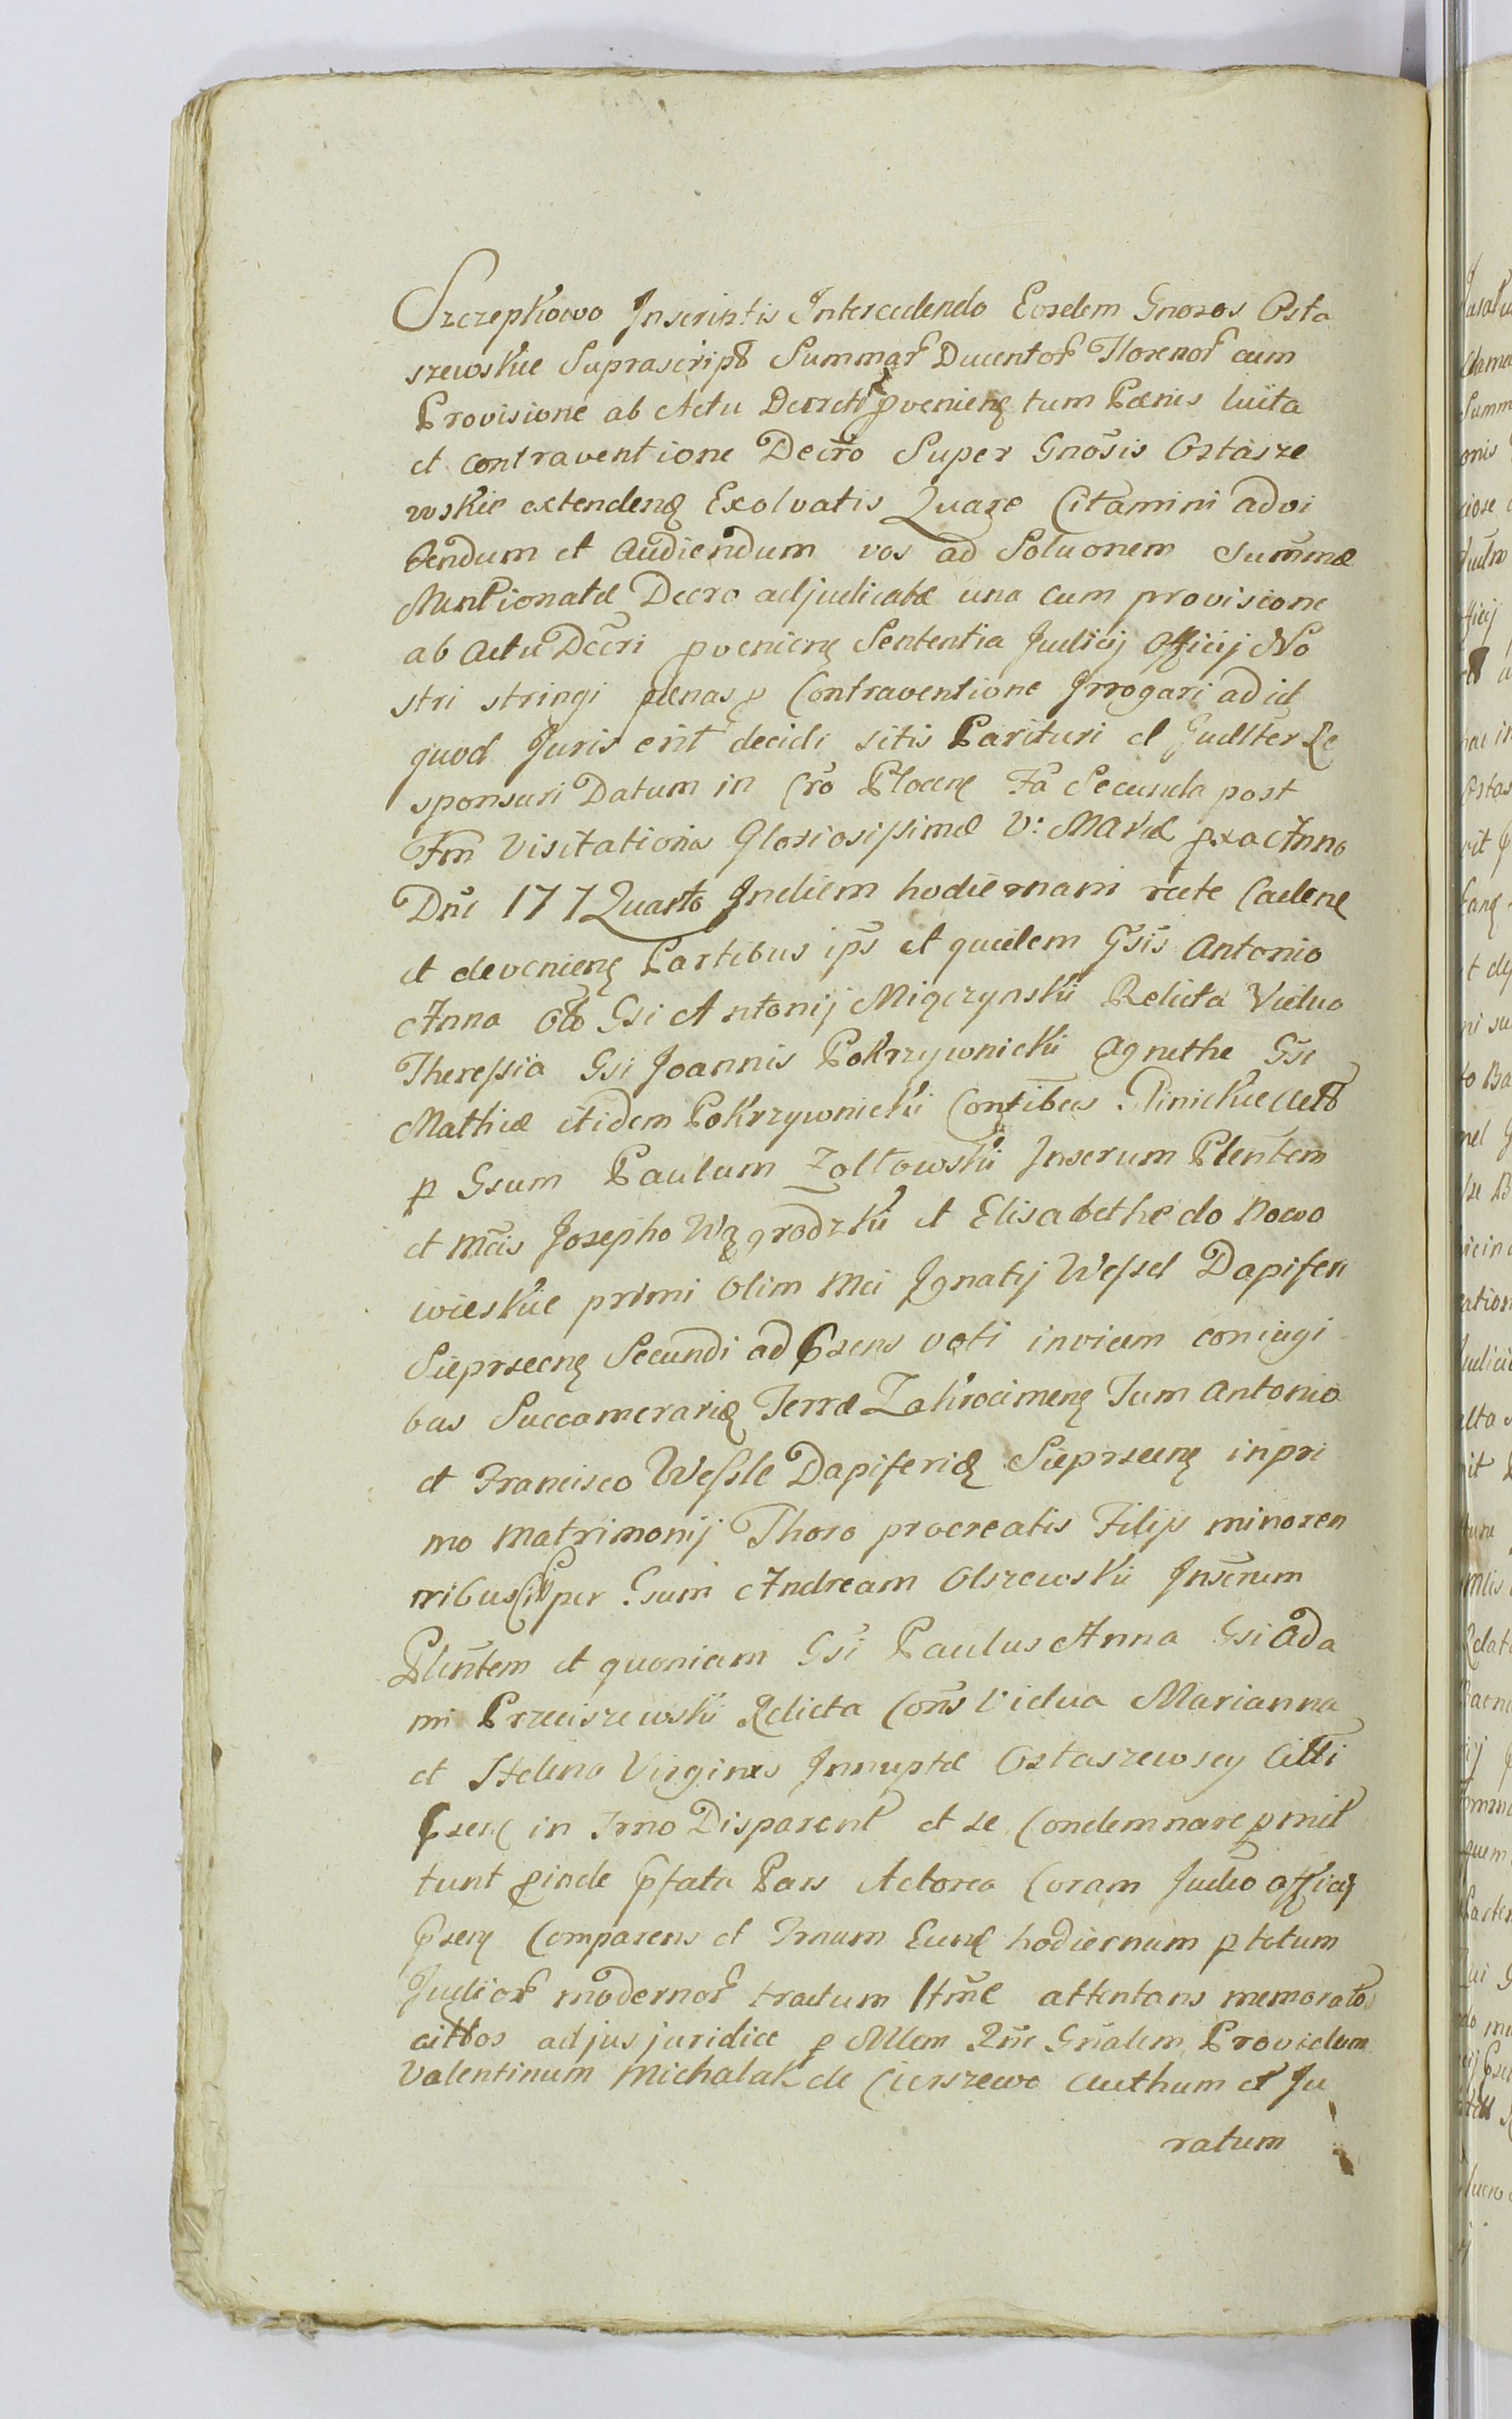 Szczepkowo Inscriptis Intercedendo Eordem Gnosos Osta
szewskie Suprascript Summar Ducentor Florenor cum
Provisione ab Actu Decreti pvenienę tum Pænis luita
et contraventione Decro Super Gnosis Ostasze
wskie extendenę Exolvatis Quare Citamini ad vi
dendum et Audiendum vos ad Soluonem Summæ
Mentionatæ Decro adjudicatæ una cum provisione
ab Actu Decri pvenienę Sententia Judicij Officij No
stri stringi pænas p Contraventione Irrogari ad id
quod Juris erit decidi sitis Parituri et Judlter Re
sponsuri Datum in Cro Plocenę Fa Secunda post
Fm Visitationis Gloriosissimæ V: Mariæ pxa Anno
Dni 177 Quarto Indiem hodiernam recte Cadenę
et devenienę Partibus ips et quidem Gsis Antonio
Anna Olb Gsi Antonij Miączynski Relicta Vidua
Theressia Gsi Joannis Pokrzywnicki Agnethe Gsi
Mathiæ itidem Pokrzywnicki Contibus Glinickie Actb
p Gsum Paulum Zołtowski Inserum Plentem
et Mcis Josepho Wągrodzki et Elisabethe do Nowo
wieskie primi Olim Mci Ignatij Wessel Dapiferi
Sieprsecnę Secundi ad Psens voti invicem conjugi
bus Succamerarię Terræ Zakrocimenę Tum Antonio
et Francisco Wessle Dapiferię Sieprsecnę in pri
mo Matrimonij Thoro procreatis Filijs minoren
nibus per Gsum Andream Olszewski Inserum
Plentem et quoniam Gsi Paulus Anna Gsi Ada
mi Przeciszewski Relicta Cons Vidua Marianna
et Helena Virgines Innuptæ Ostaszewscy Citti
Psenę in Trno Disparent et se Condemnare pmit
tunt pinde Pfata Pars Actorea Coram Judio officij
Psenę Comparens et Trnum Eunę hodiernum p totum
Judior modernor tractum Itme attentans memoratos
cittos ad jus juridice p Mlem Rni Gnalem Providum
Valentinum Michalak de Cierszewo Authum et Ju
ratum